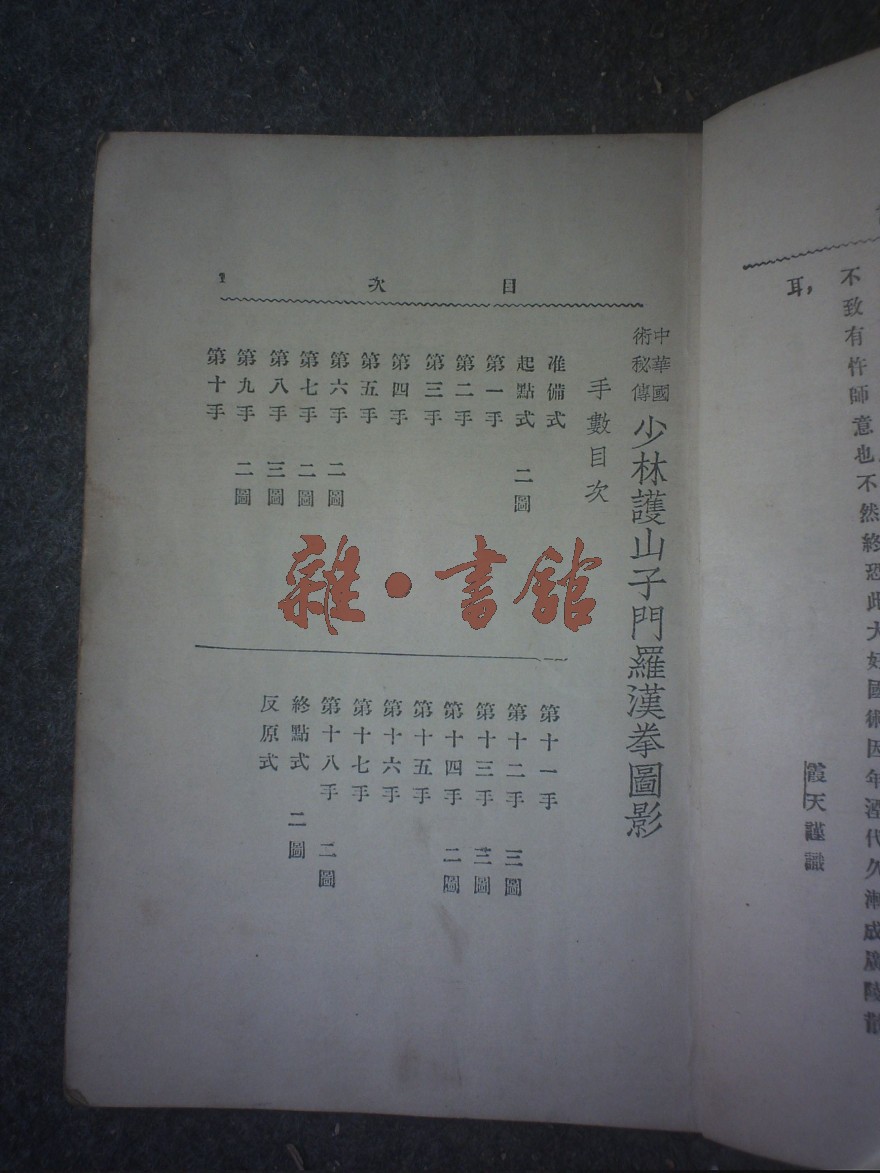 耳，
不致有忤師意也不然終恐此大好國術因年湮代久漸成廣陵散
霞天謹識
目 次 1
中華國術秘傳 少林護山子門羅漢拳圖影
手數目次
准備式
起點式 二圖
第一手
第二手
第三手
第四手
第五手
第六手 二圖
第七手 二圖
第八手 三圖
第九手 二圖
第十手
第十一手
第十二手 三圖
第十三手 三圖
第十四手 二圖
第十五手
第十六手
第十七手
第十八手 二圖
終點式 二圖
反原式
雜·書館